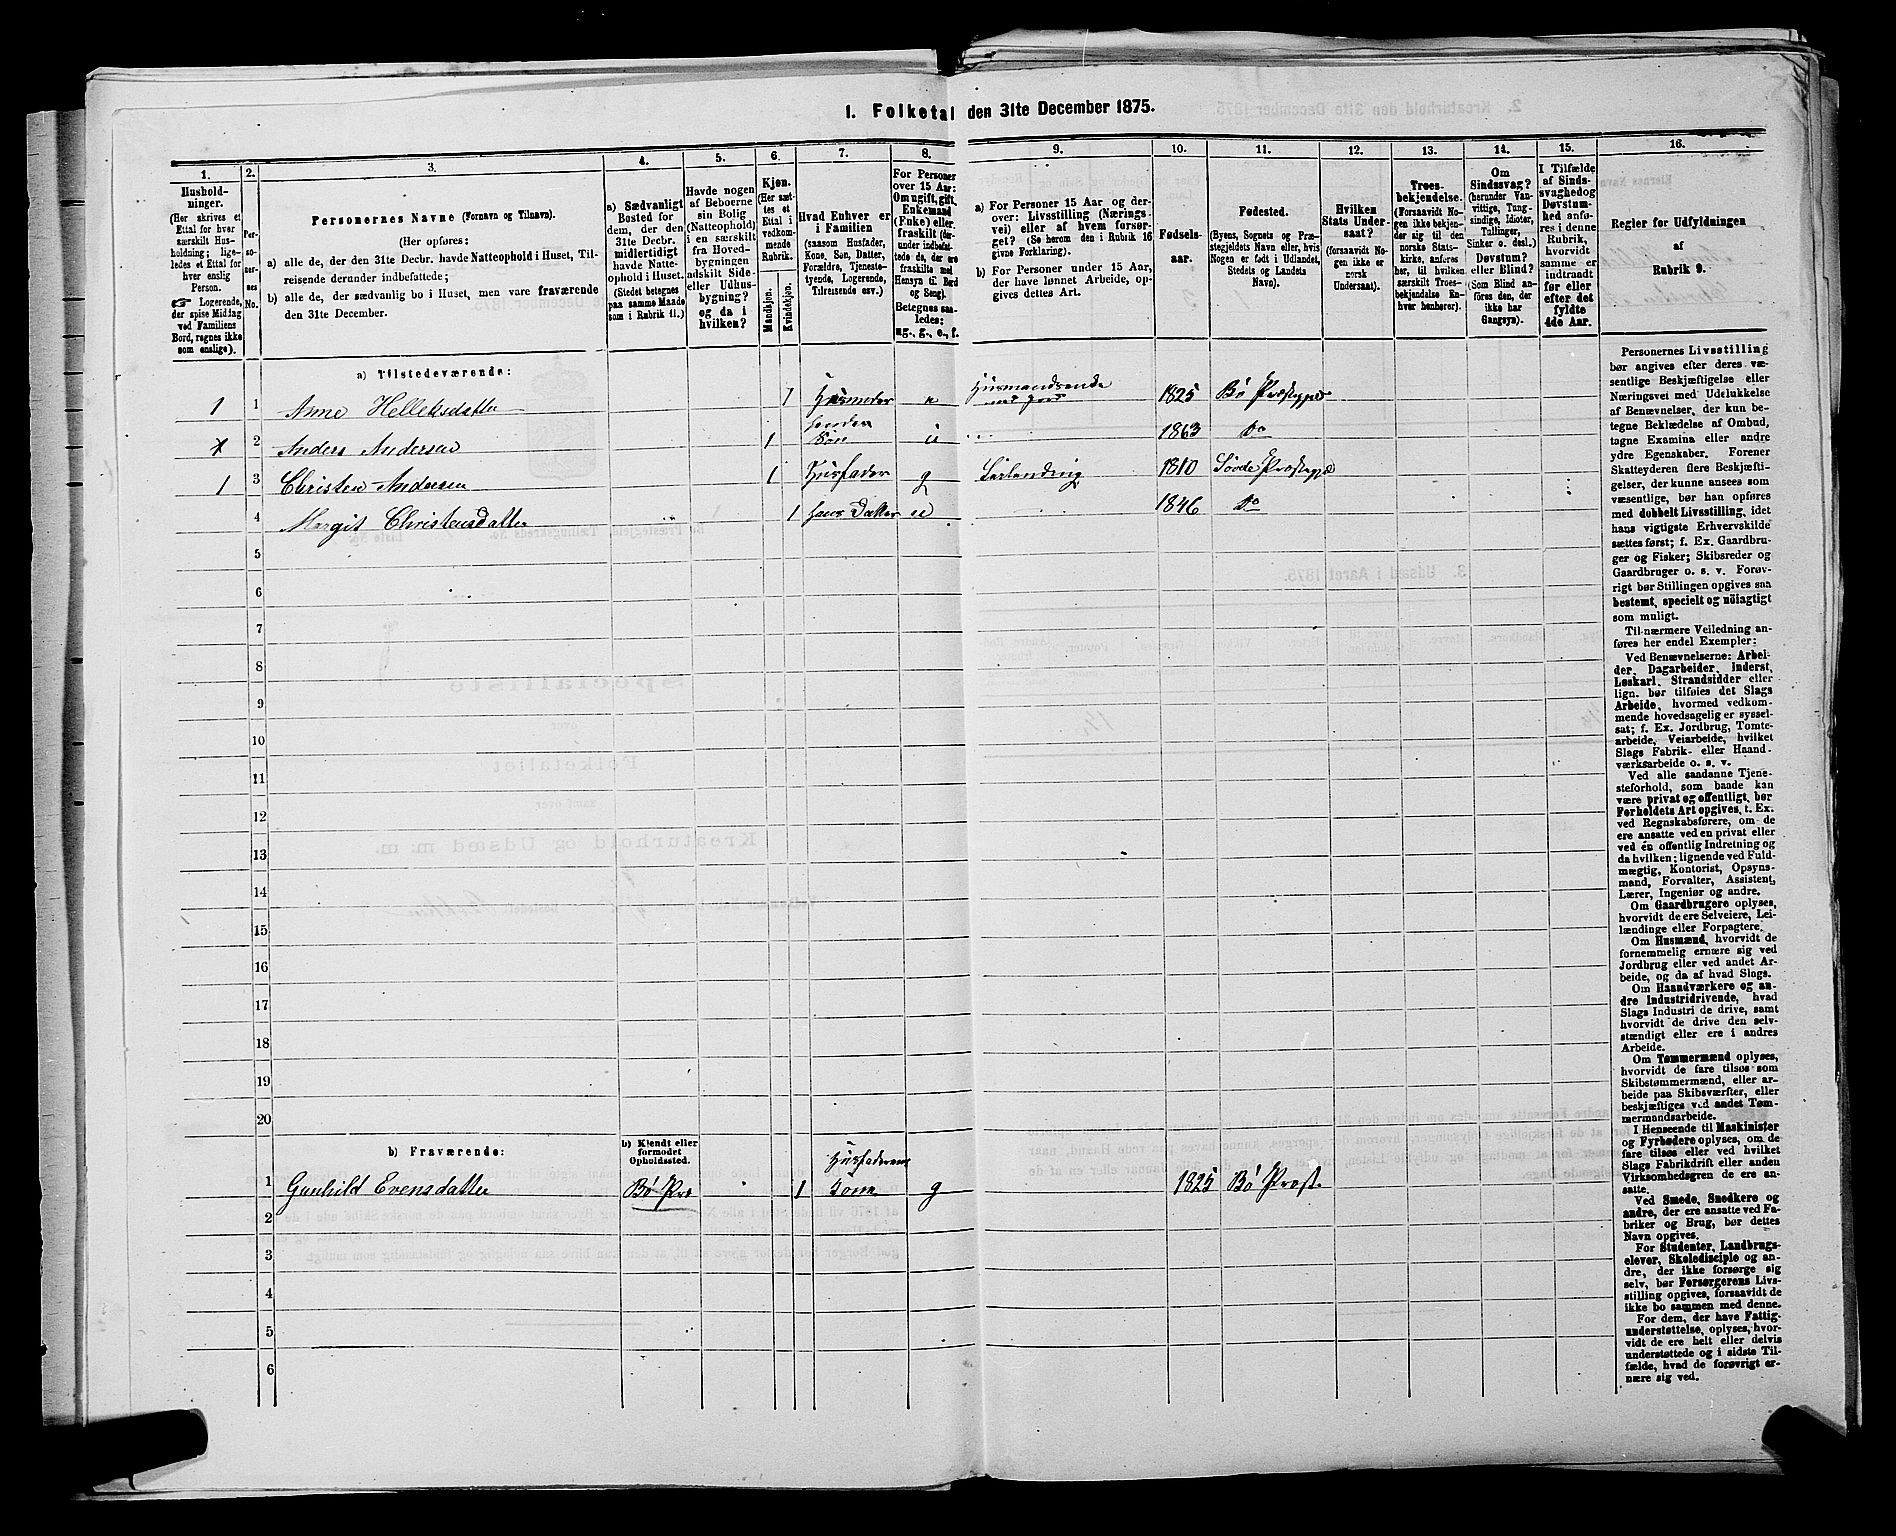 1. Folketal den 31te December 1875.
1. 2. 3. 4. 5. 6. 7. 8. 9. 10. 11. 12. 13. 14. 15. 16.
Hushold-
ninger.
(Her skrives et
Ettal for hver
særskilt Hus-
holdning; lige-
ledes et Ettal for
hver enslig
Person.
☞ Logerende,
der spise Middag
ved Familiens
Bord, regnes ikke
som enslige).
Per-
so-
ner-
nes
No.
Personernes Navne (Fornavn og Tilnavn).
(Her opføres:
a) alle de, der den 31te Decbr. havde Natteophold i Huset, Til-
reisende derunder indbefattede;
b) alle de, der sædvanlig bo i Huset, men vare fraværende
den 31te December.
a) Sædvanligt
Bosted for
dem, der den
31te Decbr.
midlertidigt
havde Natte-
ophold i Huset.
(Stedet betegnes
paa samme Maade
som i Rubrik 11.)
Havde nogen
af Beboerne
sin Bolig
(Natteophold)
i en særskilt
fra Hoved-
bygningen
adskilt Side-
eller Udhus-
bygning?
og da i
hvilken?
Kjøn.
(Her sæt-
tes et
Ettal i
vedkom-
mende
Rubrik.
Mandkjøn.
Kvindekjøn.
Hvad Enhver er
i Familien
(saasom Husfader,
Kone, Søn, Datter,
Forældre, Tjeneste-
tyende, Logerende,
Tilreisende osv.)
For Personer
over 15 Aar:
Om ugift, gift,
Enkemand
(Enke) eller
fraskilt (der-
under indbefat-
tede de, der ere
fraskilte med
Hensyn til Bord
og Seng).
Betegnes saa-
ledes:
ug., g., e., f.
a) For Personer 15 Aar og der-
over: Livsstilling (Nærings-
vei) eller af hvem forsør-
get? (Se herom den i Rubrik 16
givne Forklaring).
b) For Personer under 15 Aar,
der have lønnet Arbeide, op-
gives dettes Art.
Fødsels-
aar.
Fødested.
(Byens, Sognets og Præ-
stegjeldets Navn eller, hvis
Nogen er født i Udlandet,
Stedets og Landets
Navn).
Hvilken
Stats Under-
saat?
(forsaavidt No-
gen ikke er
norsk
Undersaat).
Troes-
bekjendelse.
(Forsaavidt No-
gen ikke bekjen-
der sig til den
norske Stats-
kirke, anføres
her, til hvilken
særskilt Troes-
bekjendelse En-
hver henhører).
Om
Sindssvag?
(herunder Van-
vittige, Tung-
sindige, Idioter,
Tullinger,
Sinker o. desl.)
Døvstum?
eller Blind?
(Som Blind an-
føres den, der
ikke har
Gangsyn).
I Tilfælde
af Sinds-
svaghed og
Døvstum-
hed anfø-
res i denne
Rubrik,
hvorvidt
samme er
indtraadt
før eller
efter det
fyldte
4de Aar.
Regler for Udfyldningen
af
Rubrik 9.
a) Tilstedeværende:
1 1 Anne Helleksdatter 1 Husmoder e Husmandsenke med Jord 1825 Bø Præstegjæld
2 Anders Andersen 1 hendes Søn u 1863 Do
1 3 Christen Andersen 1 Husfader g Leilending 1810 Præstegjæld
4 Margit Christensdatter 1 hans Datter u 1846 Do
5
6
7
8
9
10
11
12
13
14
15
16
17
18
19
20
b) Fraværende:
b) Kjendt eller
formodet
Opholdssted.
1 Gunhild Evensdatter Bø Præ 1 Husfaderens Kone g 1825 Bø Præst.
2
3
4
5
6
Personernes Livsstilling
bør angives efter deres væ-
sentlige Beskjæftigelse eller
Næringsvei med Udelukkelse
af Benævnelser, der kun be-
tegne Beklædelse af Ombud,
tagne Examina eller andre
ydre Egenskaber. Forener
Skatteyderen flere Beskjæfti-
gelser, der kunne ansees som
væsentlige, bør han opføres
med dobbelt Livsstilling, idet
hans vigtigste Erhvervskilde
sættes først; f. Ex. Gaardbru-
ger og Fisker; Skibsreder og
Gaardbruger o. s. v. Forøv-
rigt bør Stillingen opgives saa
bestemt, specielt og nöiagtigt
som muligt.
Til nærmere Veiledning an-
føres her endel Exempler:
Ved Benævnelserne: Arbei-
der, Dagarbeider, Inderst,
Løskarl, Strandsidder eller
lign. bør tilføies det Slags
Arbeide, hvormed vedkom-
mende hovedsagelig er syssel-
sat; f. Ex. Jordbrug, Tomte-
arbeide, Veiarbeide, hvilket
Slags Fabrik- eller Haand-
værksarbeide o. s. v.
Ved alle saadanne Tjene-
steforhold, som baade kan
være privat og offentligt, bør
Forholdets Art opgives, t. Ex.
ved Regnskabsførere, om de
ere ansatte ved en privat eller
ved en offentlig Indretning og
da hvilken; lignende ved Fuld-
mægtig, Kontorist, Opsyns-
mand, Forvalter, Assistent,
Lærer, Ingeniør og andre.
Om Gaardbrugere oplyses,
hvorvidt de ere Selveiere, Lei-
lændinge eller Forpagtere.
Om Husmænd, hvorvidt de
fornemmelig ernære sig ved
Jordbrug eller ved andet Ar-
beide, og da af hvad Slags.
Om Haandværkere og an-
dre Industridrivende, hvad
Slags Industri de drive, samt
hvorvidt de drive den selv-
stændigt eller ere i andres
Arbeide.
Om Tømmermænd oplyses,
hvorvidt de fare tilsøs som
Skibstømmermænd, eller ar-
beide paa Skibsværfter, eller
beskjæftiges ved andet Tøm-
mermandsarbeide.
I Henseende til Maskinister
og Fyrbødere oplyses, om de
fare tilsøs eller ved hvilket
Slags Fabrikdrift eller anden
Virksomhedsgren de ere an-
satte.
Ved Smede, Snedkere og
andre, der ere ansatte ved Fa-
briker og Brug, bør dettes
Navn opgives.
For Studenter, Landbrugs-
elever, Skoledisciple og an-
dre, der ikke forsørge sig
selv, bør Forsørgerens Livs-
stilling opgives, forsaavidt de
ikke bo sammen med denne.
For dem, der have Fattig-
understøttelse, oplyses, hvor-
vidt de ere helt eller delvis
understøttede og i sidste Til-
fælde, hvad de forøvrigt er-
nære sig ved.